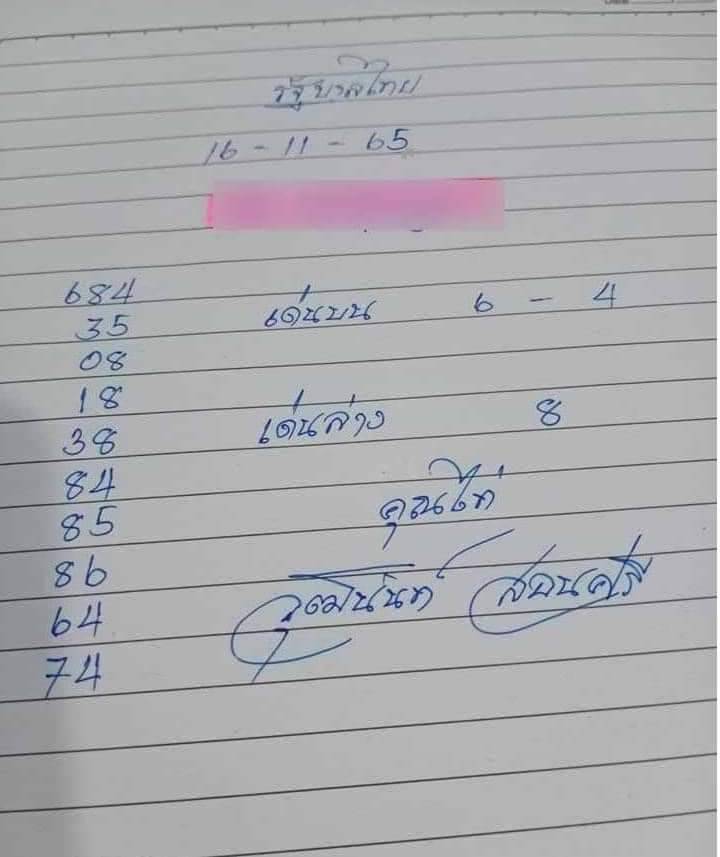 รัฐบาลไทย
16 - 11 - 65
684
35
เด่นบน 6 - 4
08
18
38
เด่นล่าง 8
84
85
คุณไก่
86
64
วุฒินันท์ สอนศรี
74